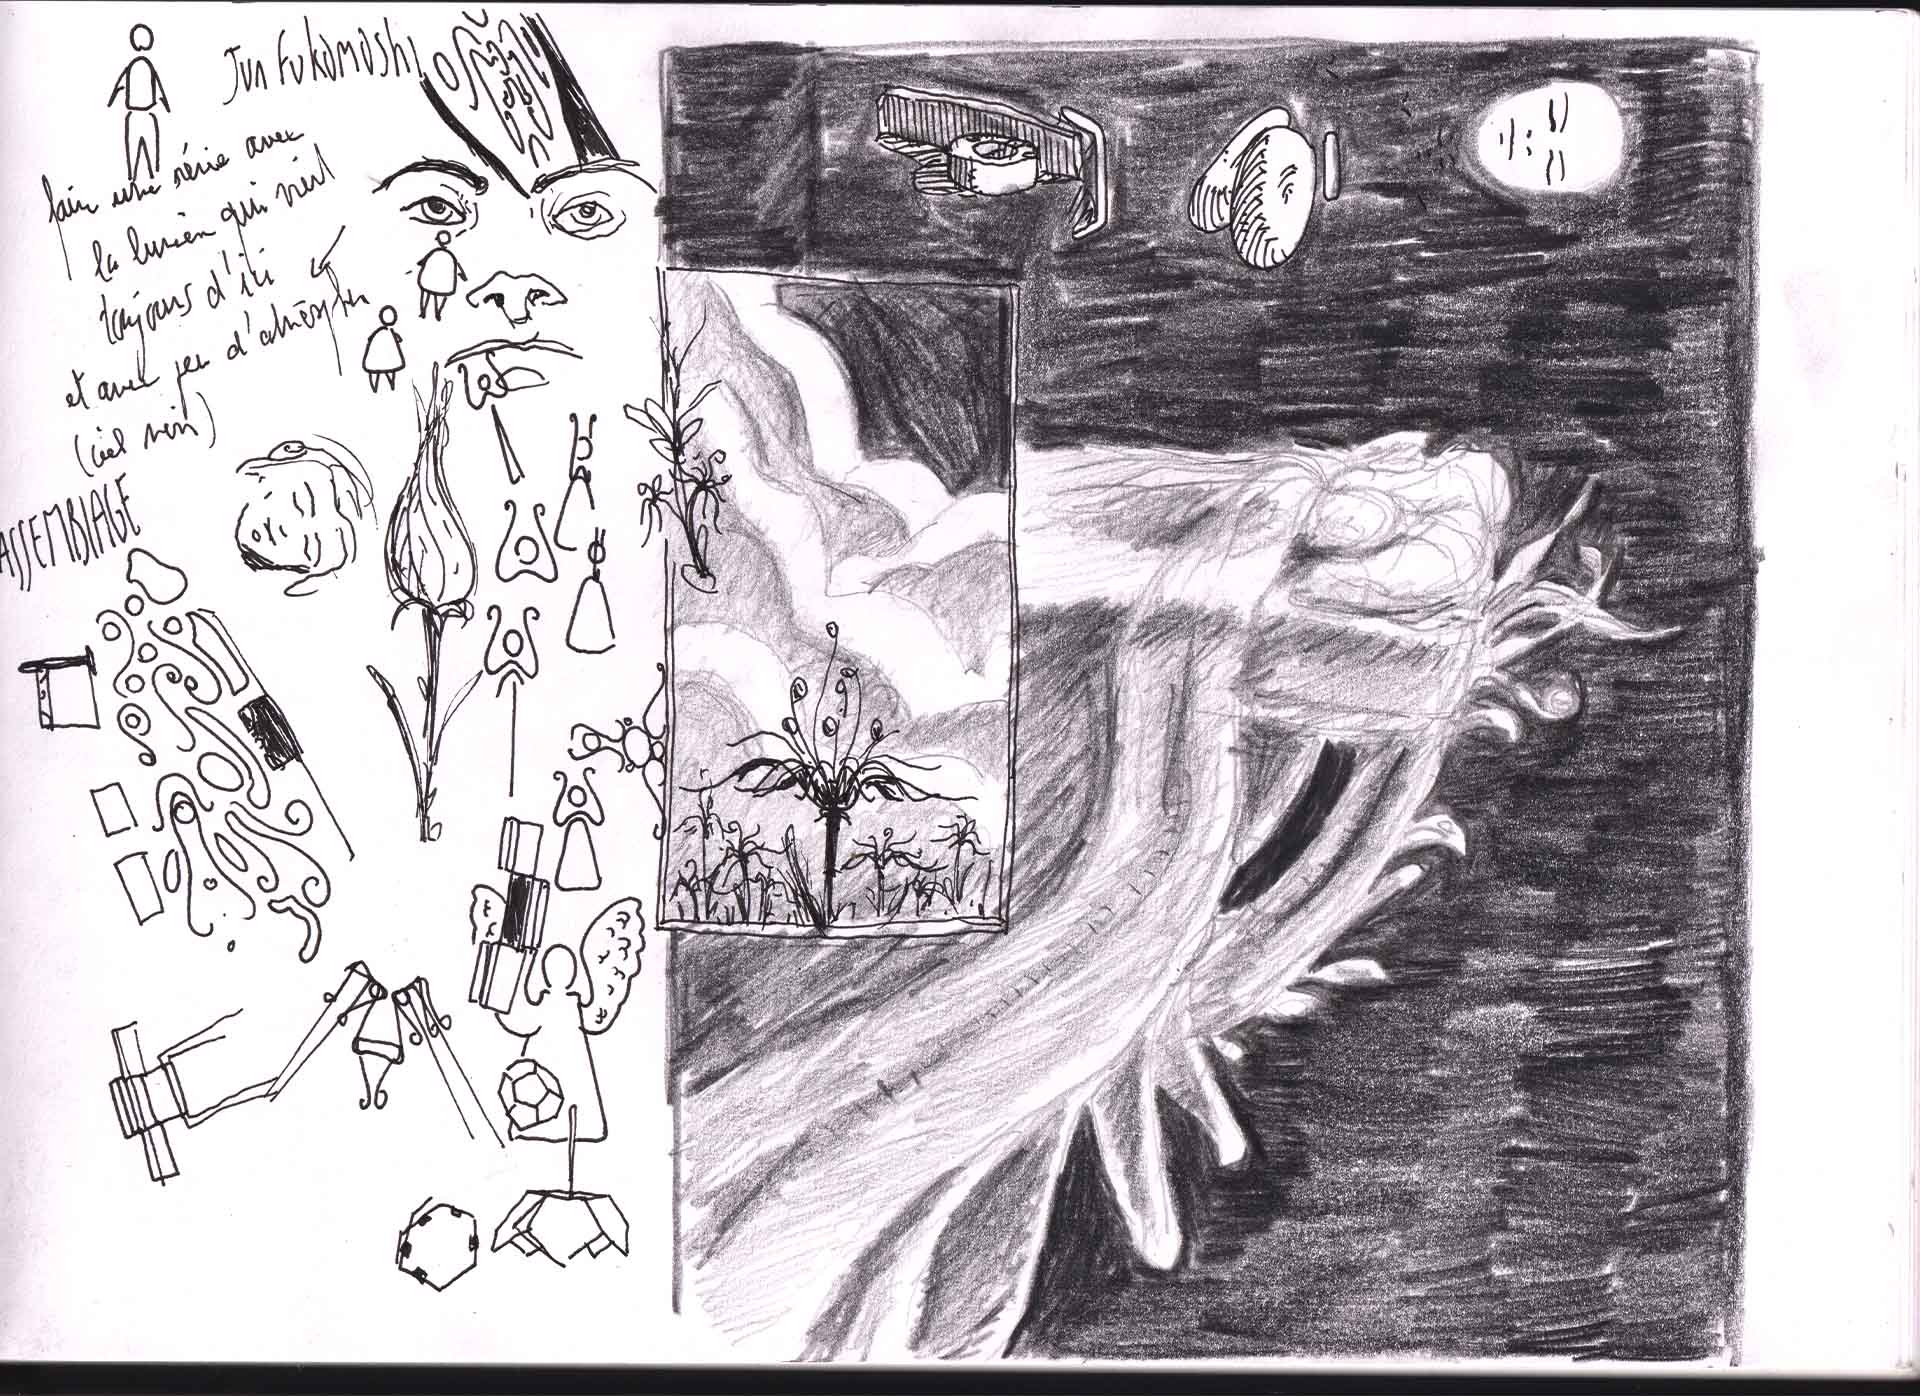 Jun FUKAMOSHI
faire une série avec
la lumière qui vient
toujours d'ici
et avec peu d'atmosphère
(ciel noir)
ASSEMBLAGE